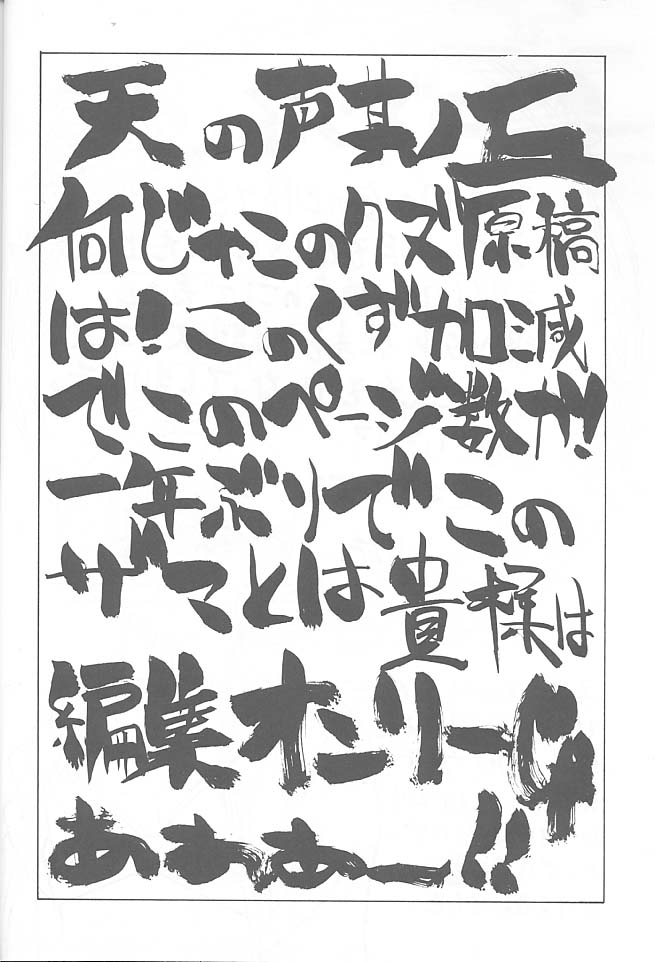 天の声其ノ五
何じゃこのクズ原稿
は!このくず加減
でこのページ数か!
一年ぶりでこの
ザマとは貴様は
編集オンリーじゃ
あぁあー!!